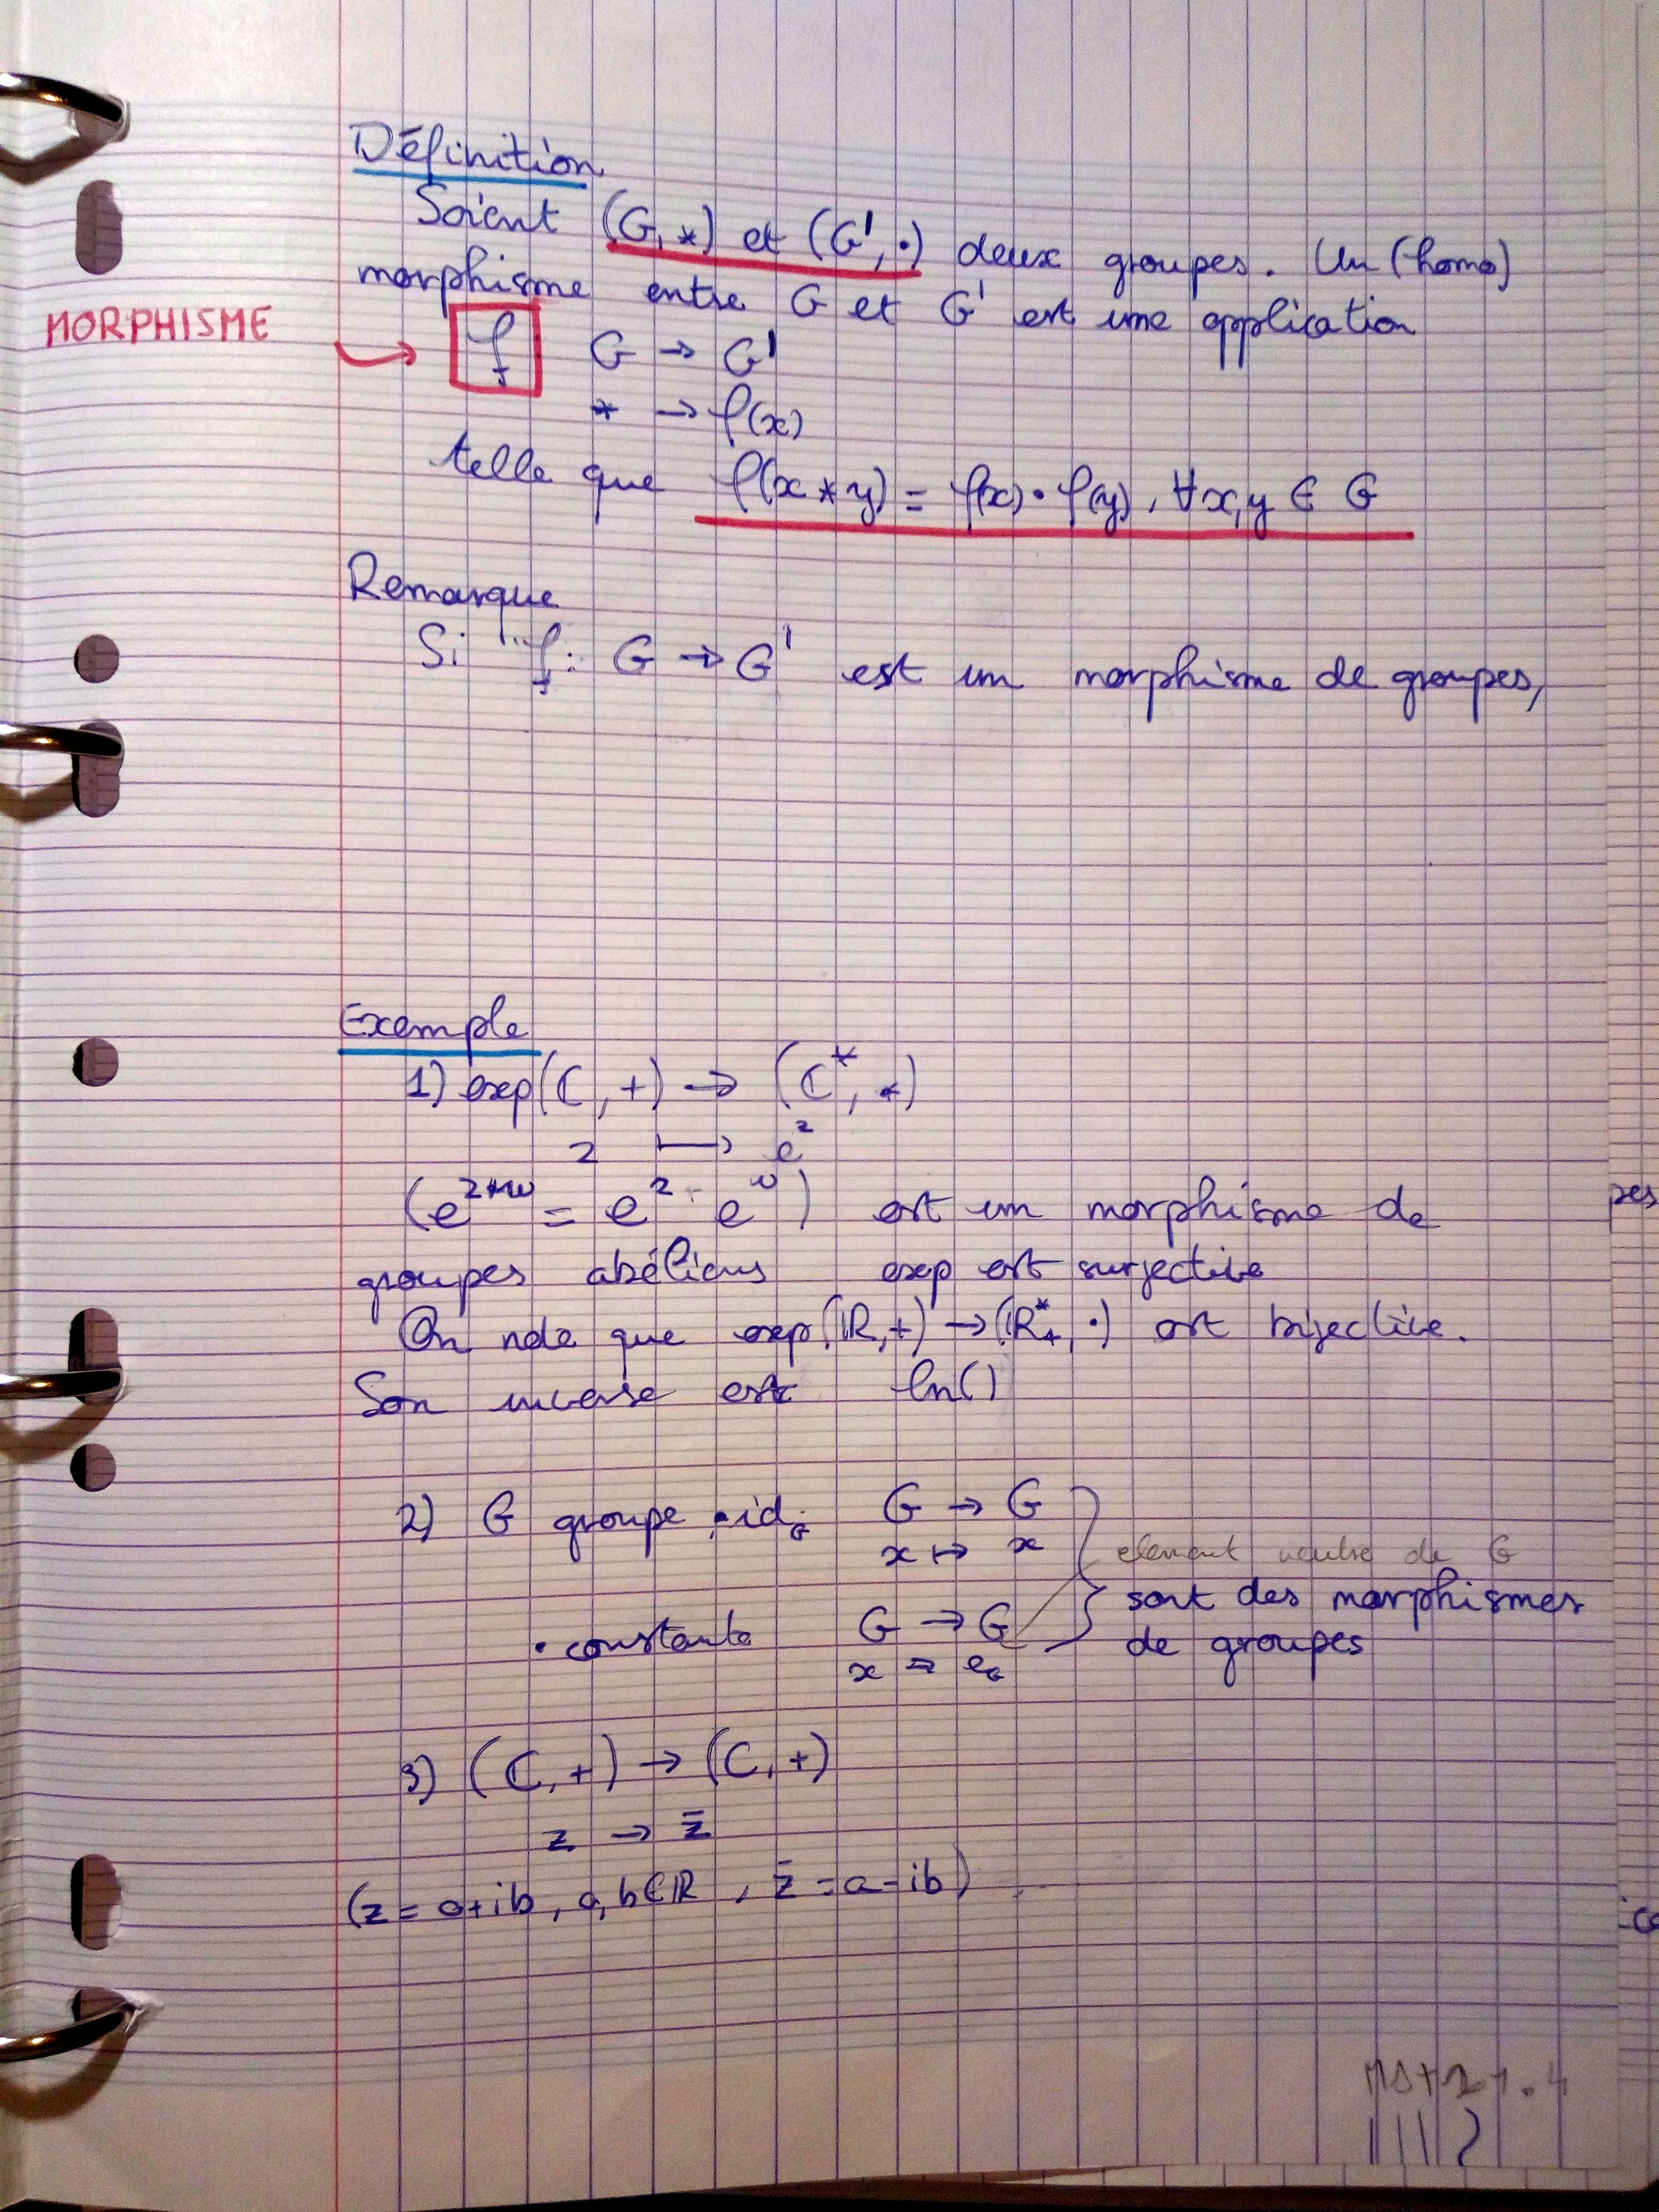 Définition
Soient (G, *) et (G', •) deux groupes. Un (homo)
morphisme entre G et G' est une application
MORPHISME
f G → G'
* → f(x)
telle que f(x * y) = f(x) • f(y), ∀x,y ∈ G
Remarque
Si f: G → G' est un morphisme de groupes,
Exemple
1) exp(ℂ, +) → (ℂ*, *)
z ⟼ e^z
(e^{z+w} = e^z · e^w) est un morphisme de
groupes abéliens exp est surjective
On note que exp(ℝ, +) → (ℝ*₊, •) est bijective.
Son inverse est ln()
2) G groupe • id_G G → G
x ↦ x
element neutre de G
sont des morphismes
• constante G → G
de groupes
x → e_G
3) (ℂ, +) → (ℂ, +)
z → z̄
(z = a+ib, a,b ∈ ℝ, z̄ = a-ib)
pes